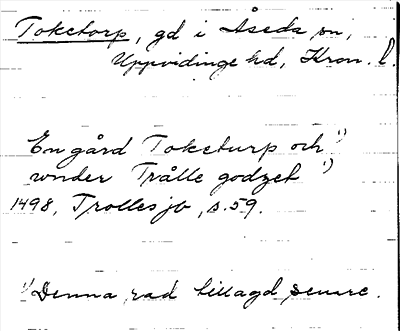 Toketorp, gd i Åseda sn,
Uppvidinge hd, Kron. l.
En gård Toketurp och ¹)
vnder Trålle godzet ¹)
1498, Trolles jb, s. 59.
¹) Denna rad tillagd senare.